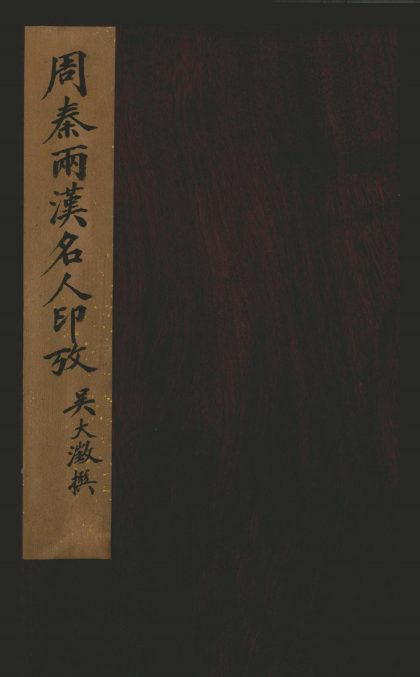 周秦兩漢名人印攷
吳大澂撰